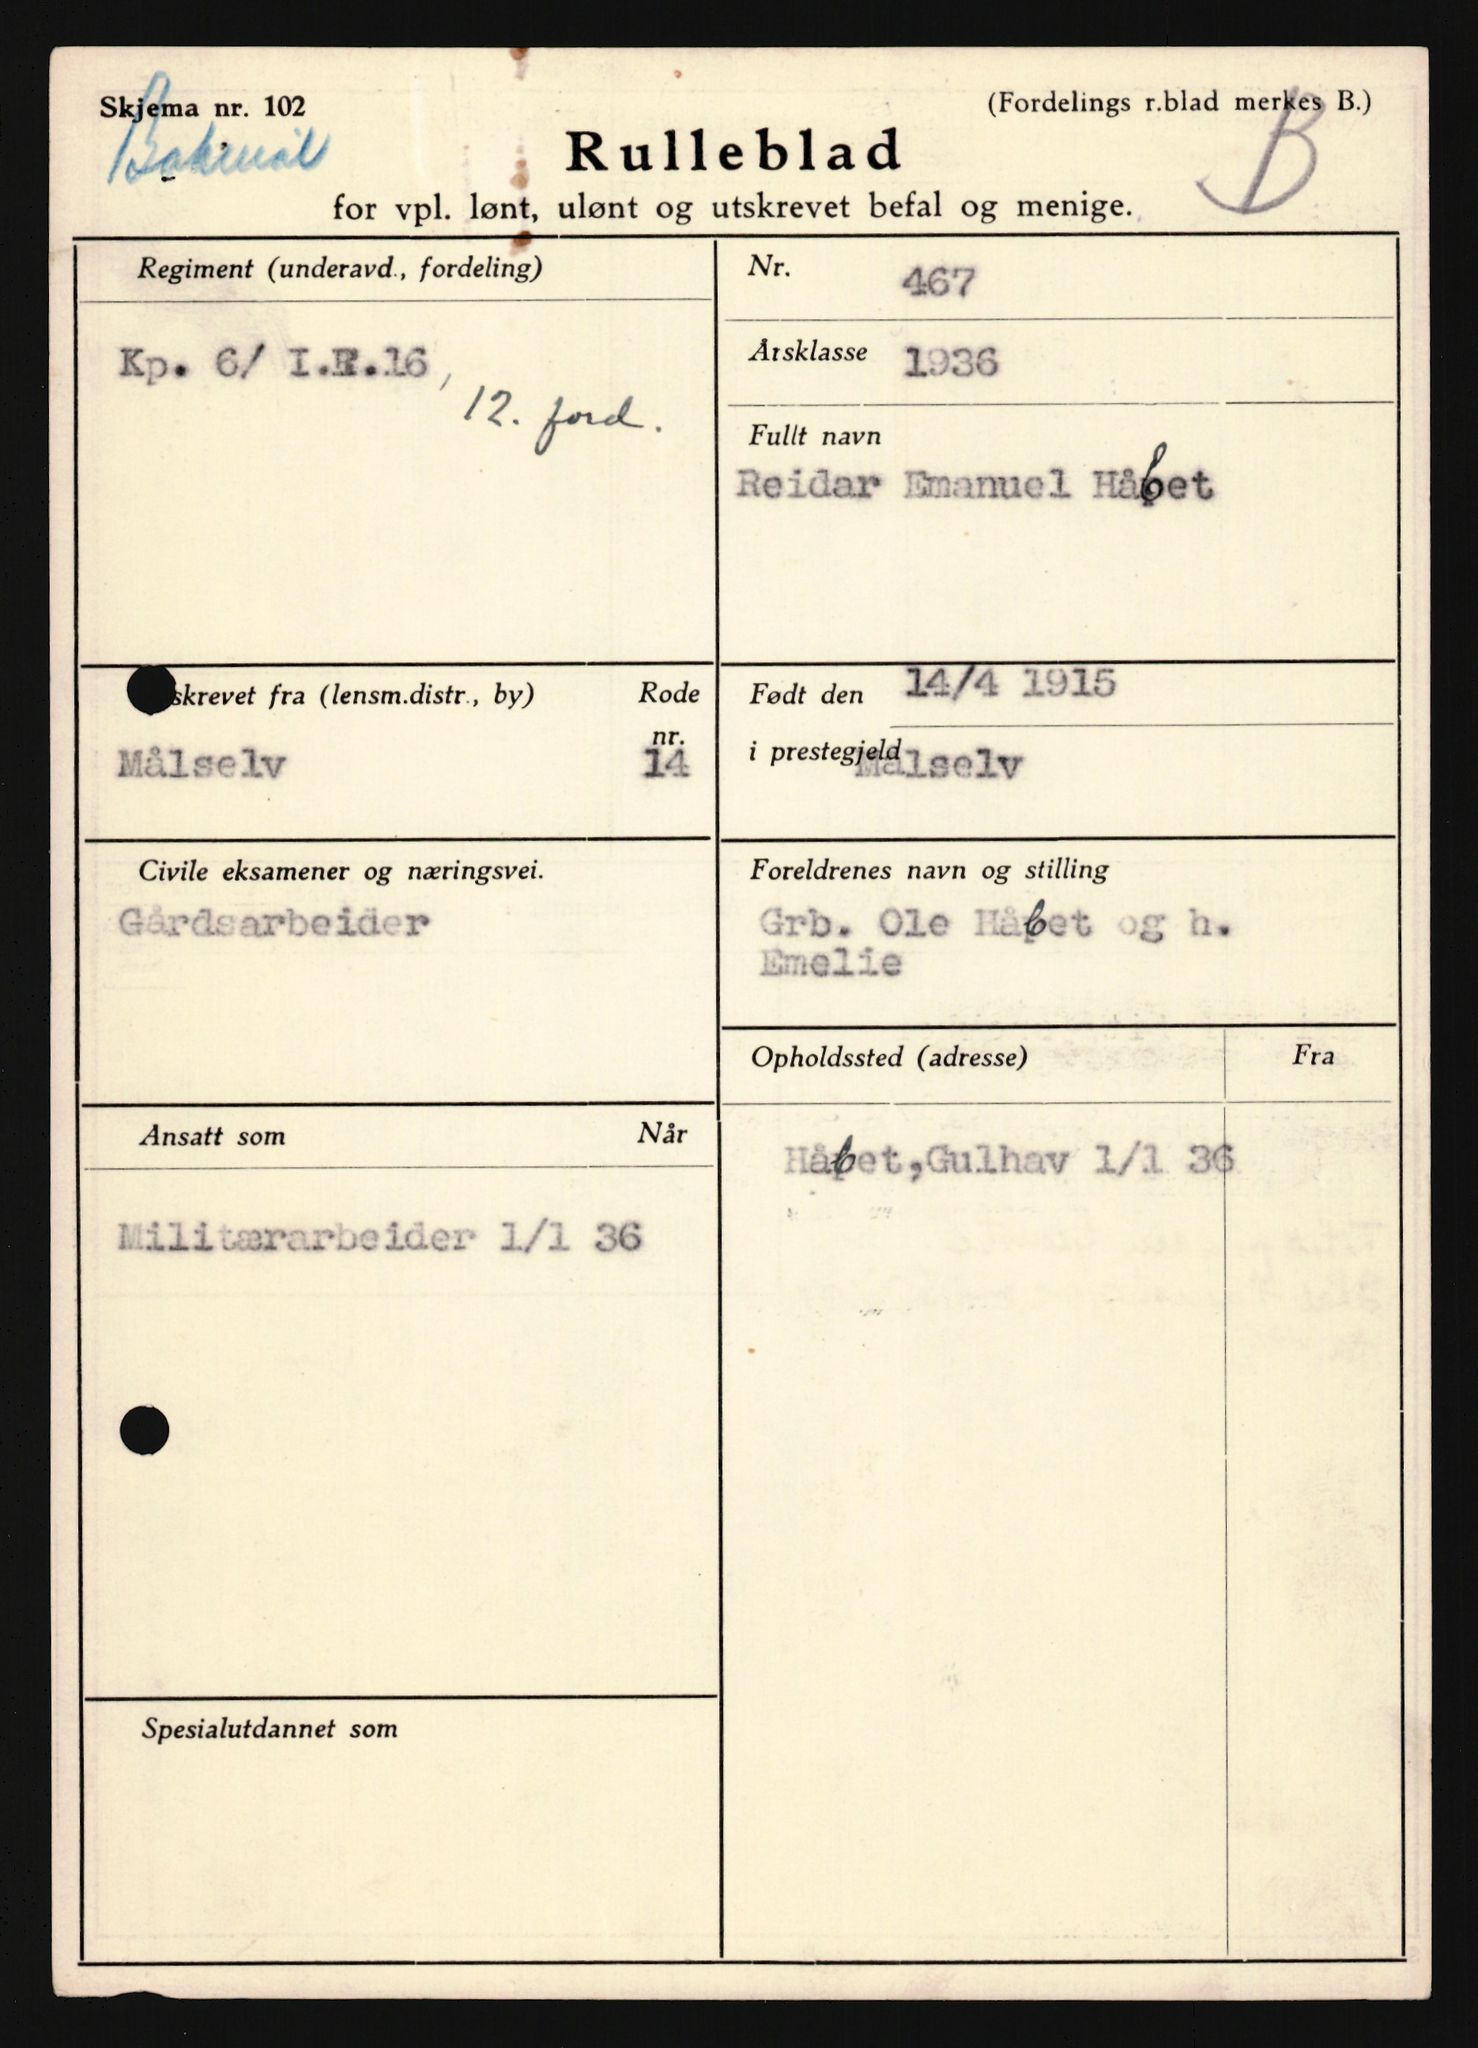 Skjema nr. 102
(Fordelings r.blad merkes B.)
Bokmål
B
Rulleblad
for vpl. lønt, ulønt og utskrevet befal og menige.
Regiment (underavd., fordeling)
Kp. 6/ I.R.16,
12. ford.
Nr. 467
Årsklasse 1936
Fullt navn
Reidar Emanuel Håbet
skrevet fra (lensm.distr., by)
Rode
nr.
Målselv
14
Født den 14/4 1915
i prestegjeld Målselv
Civile eksamener og næringsvei.
Gårdsarbeider
Foreldrenes navn og stilling
Grb. Ole Håbet og h.
Emelie
Opholdssted (adresse)
Fra
Håbet,Gulhav 1/1 36
Ansatt som
Når
Militærarbeider 1/1 36
Spesialutdannet som